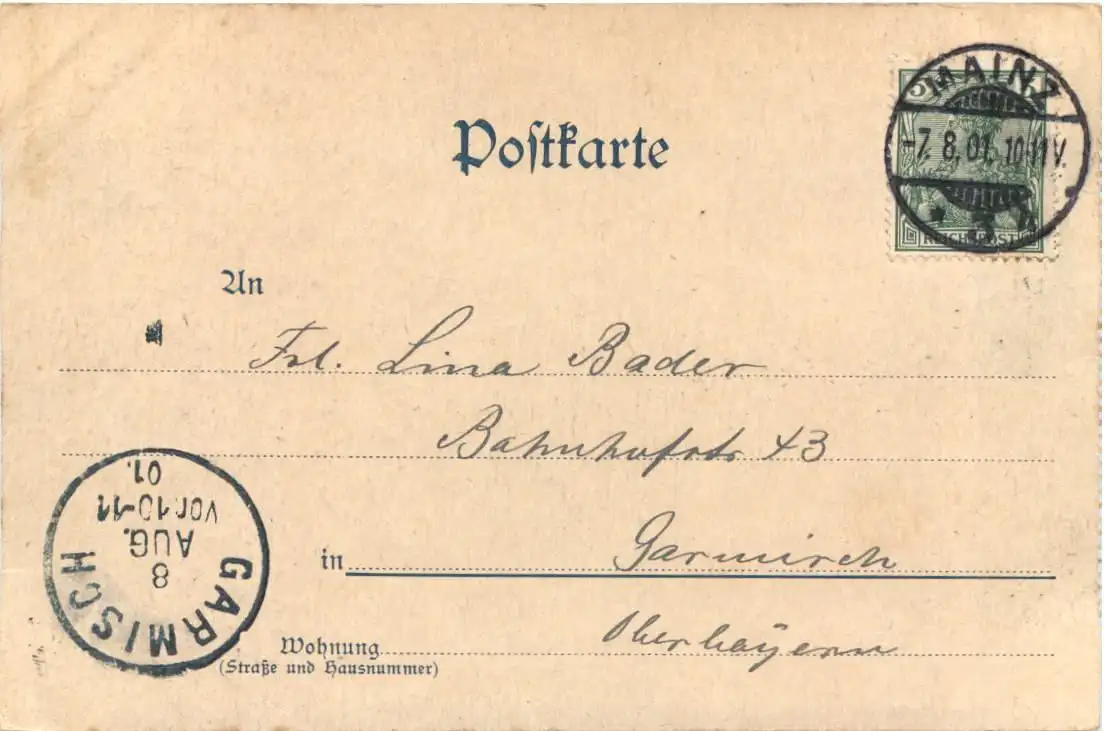 Postkarte
5 5
REICHSPOST
MAINZ
-7.8.01. 10-11V.
* 3 *
An
Frl. Lina Bader
Bahnhofstr 43
in Garmisch
Oberbayern
Wohnung
(Straße und Hausnummer)
GARMISCH
8
AUG.
vor 10-11
01.